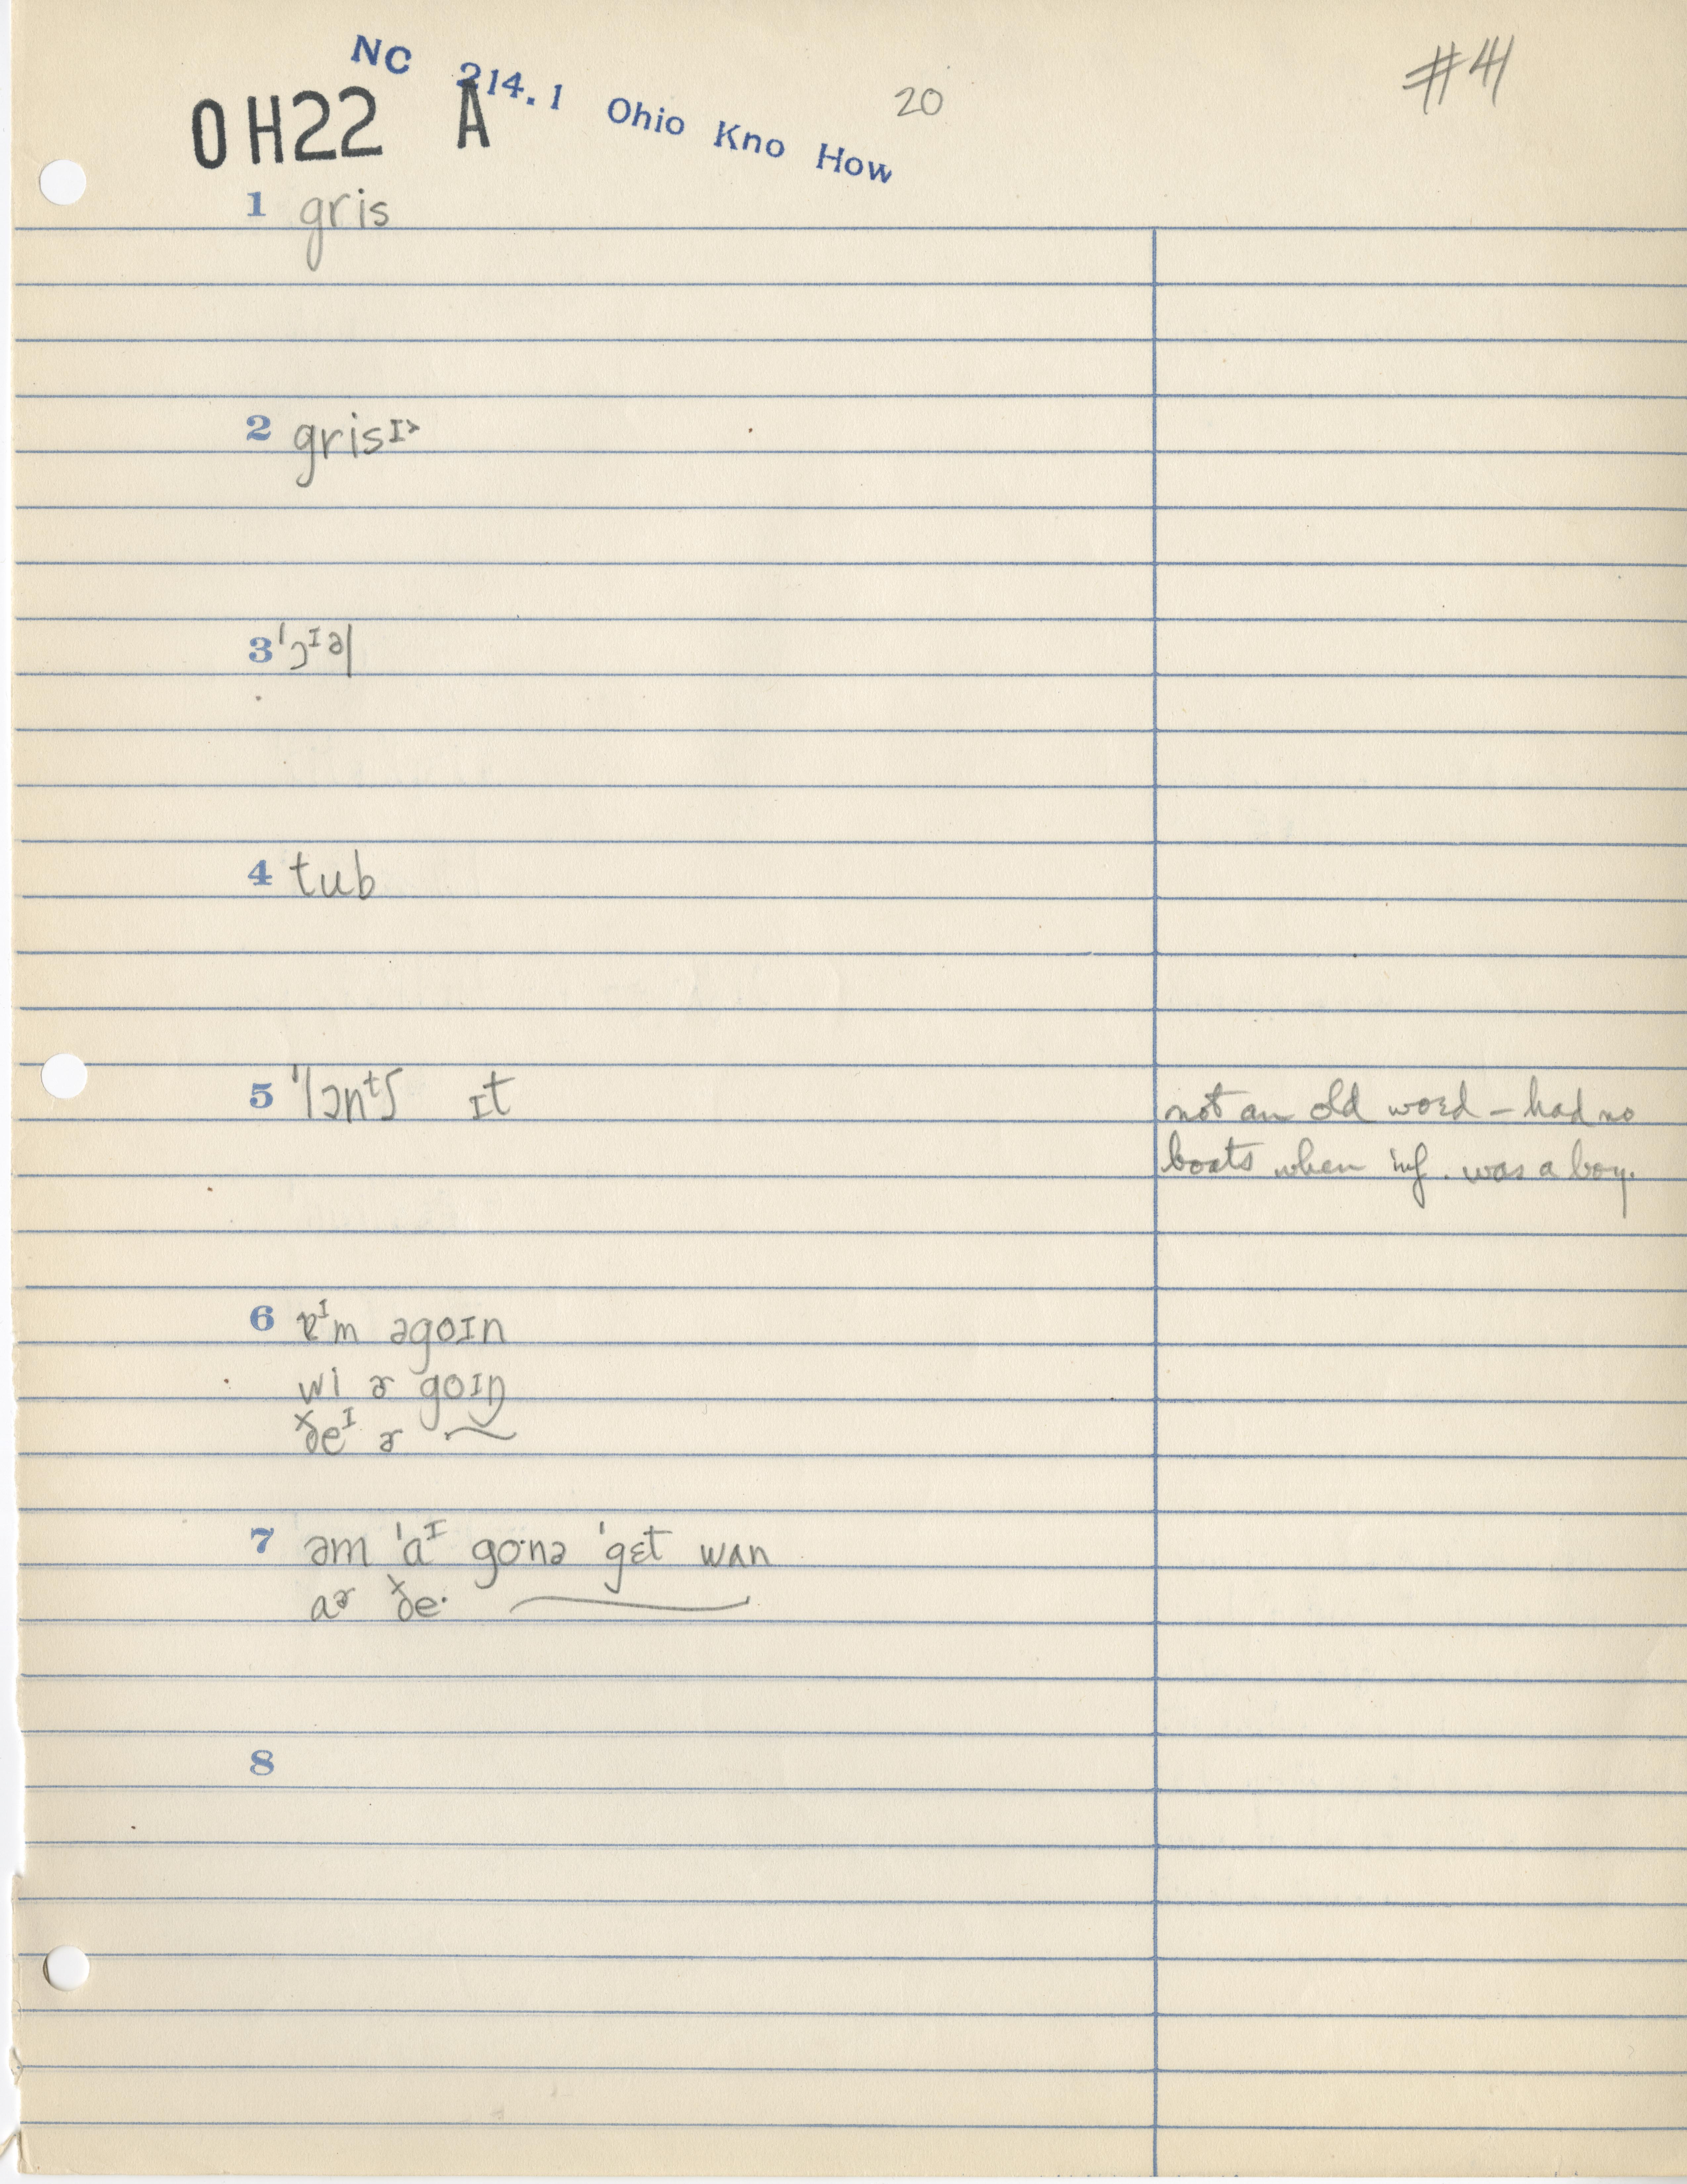 NC 214.1 Ohio Kno How
OH22 A
20
#4
1 gris
2 grisɪ˃
3 ˈɔᶦəl
4 tub
5 ˈlɔnᵗʃ ɪt
not an old word – had no
boats when inf. was a boy.
6 ɐᶦm əgoɪn
wi ɚ goɪŋ
ðeᶦ ɚ ~
7 əm ˈaᶦ go·nə ˈgɛt wʌn
aɚ ðe· ~
8